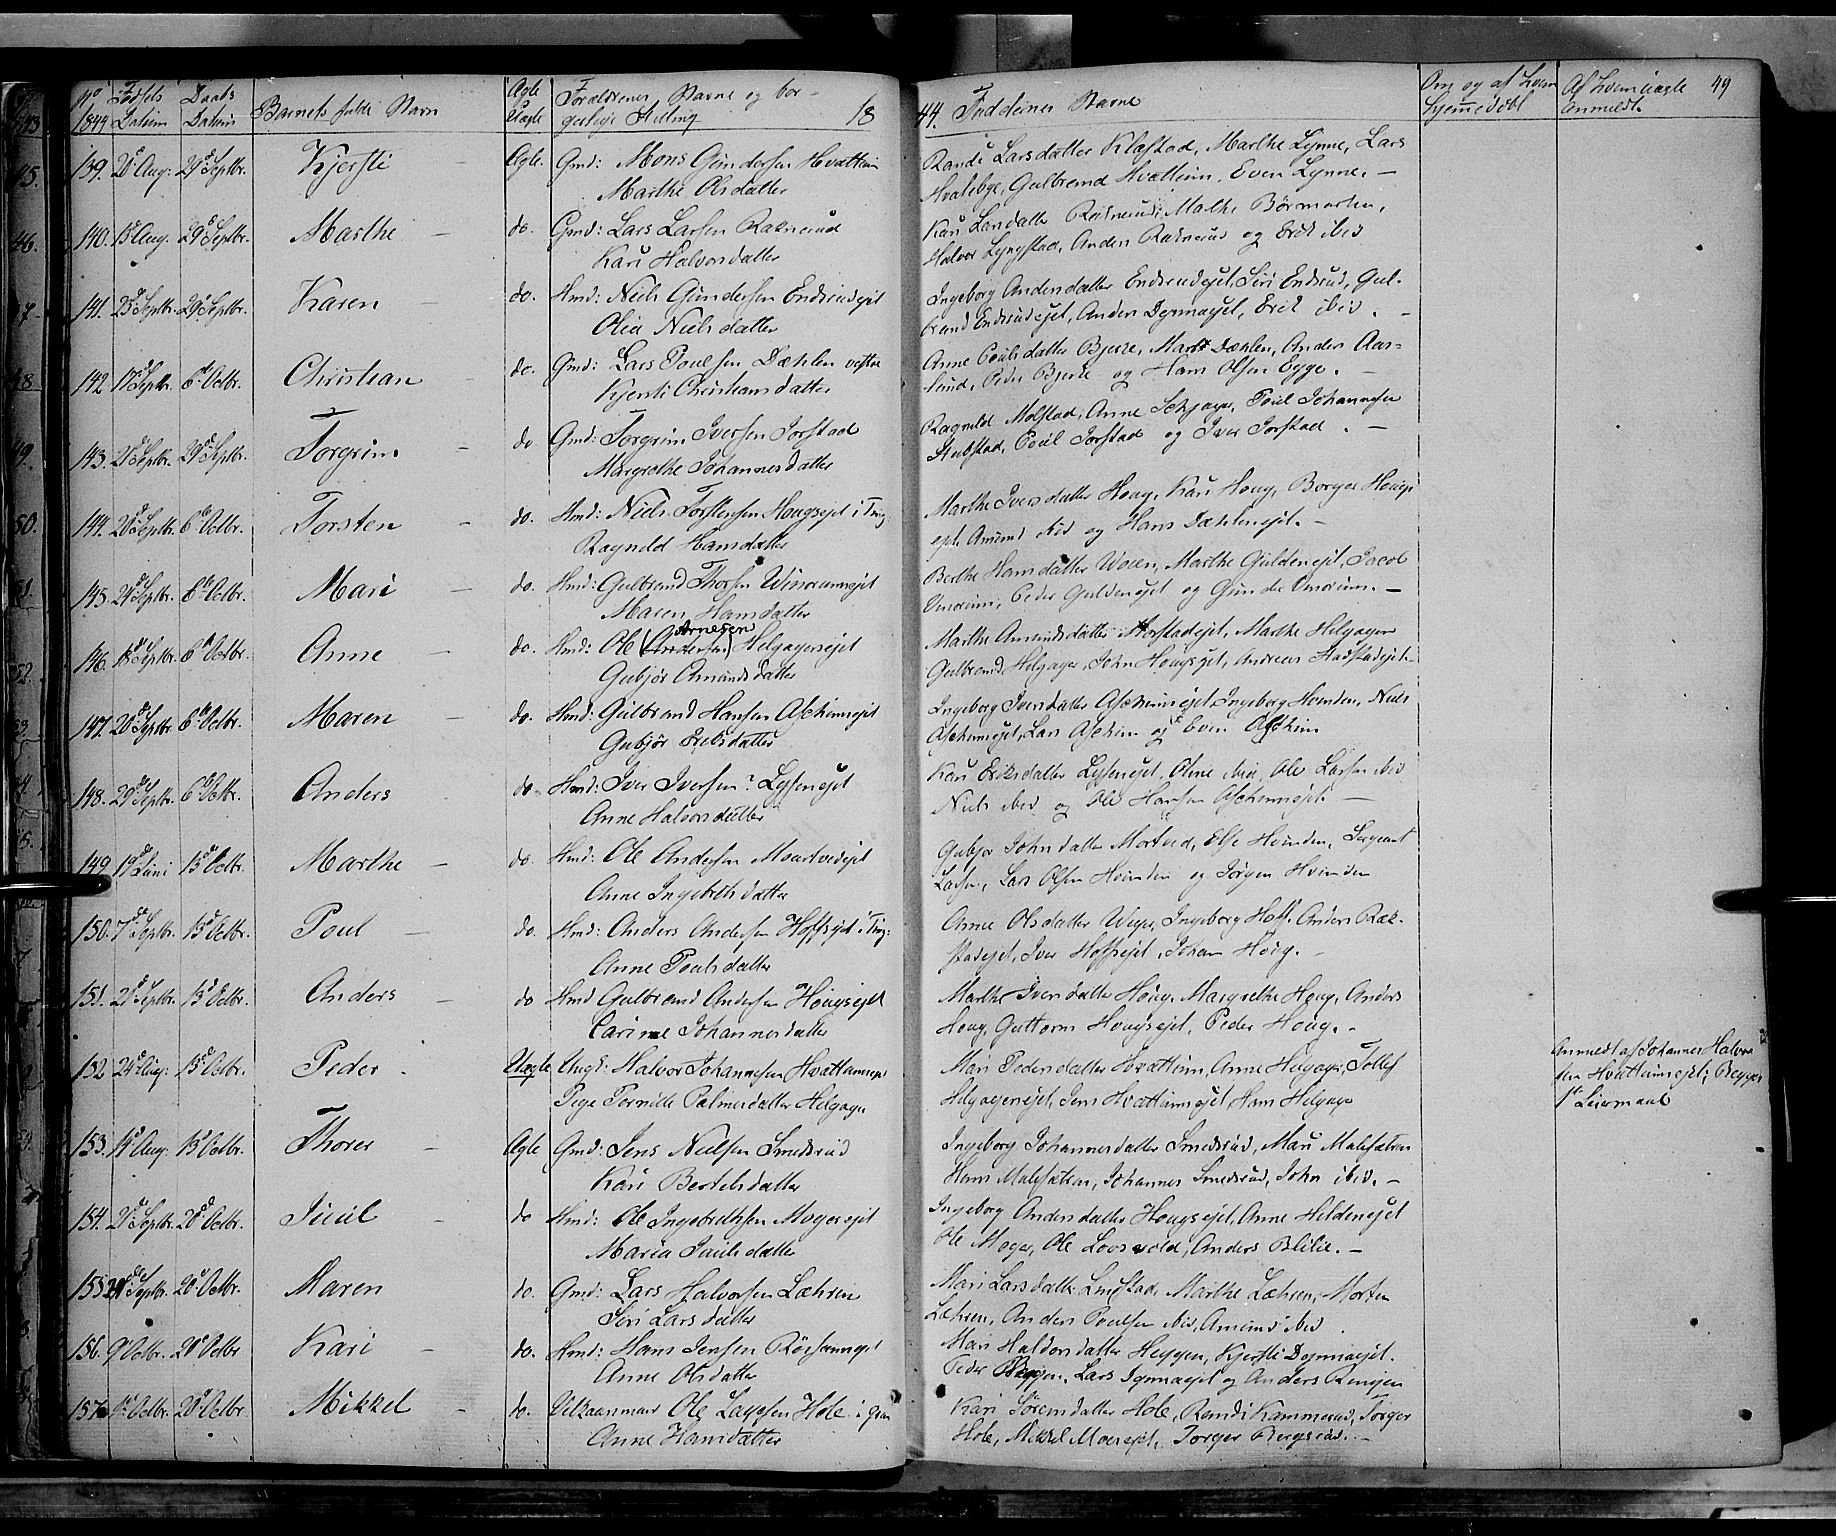 No 1844 Fødsels Datum Daabs Datum Barnets fulde Navn Ægte Uægte Forældrenes Navne og bor-
gerlige Stilling 18
44. Faddernes Navne Om og af hvem hjemmedøbt Af hvem uægte anmeldt 49
139. 20 Aug: 29 Septbr. Kjersti Ægte. Gmd: Mons Gundersen Hvattum
Marthe Olsdatter
Randi Larsdatter Klæstad, Marthe Lynne, Lars
Hvalebye, Gulbrand Hvattum, Even Lynne. —
140. 13 Aug. 29 Septbr. Marthe do. Gmd: Lars Larsen Raknerud
Kari Halvorsdatter
Kari Larsdatter Raknerud, Malhe Børmarken,
Halvor Lyngstad, Anders Raknerud og Erik ibid
141. 23 Septbr. 29 Septbr. Karen do. Hmd: Niels Gundersen Endrudejet
Olia Nielsdatter
Ingeborg Andersdatter Endrudejet, Siri Endrud, Gul-
brand Endrudejet, Anders Dynnaejet, Erik ibid. —
142. 17 Septbr. 6 Octbr. Christian do. Gmd: Lars Poulsen Dæhlen vestre
Kjersti Christiansdatter
Anne Poulsdatter Bjerke, Marte Dæhlen, Anders Aas-
lund, Peder Bjerke og Hans Olsen Egge. —
143. 21 Septbr. 29 Septbr. Torgrim do Gmd: Torgrim Iversen Jorstad
Margrethe Johannesdatter
Ragnild Molstad, Anne Schjager, Poul Johannesen
Stubstad, Poul Jorstad og Iver Jorstad. —
144. 20 Septbr. 6 Octbr. Torsten do. Hmd: Niels Torstensen Hougsejet i Ting:
Ragnild Hansdatter
Marthe Iversdatter Houg, Kari Houg, Borger Hougs
ejet, Amund ibid og Hans Dæhlenejet. —
145. 24 Septbr. 6 Octbr. Mari do. Hmd: Gulbrand Thorsen Winorumejet
Maren Hansdatter
Berthe Hansdatter Woien, Marthe Guldenejet, Jacob
Vinorum, Peder Guldenejet og Gunder Vinorum. —
146. 13 Septbr. 6 Octbr. Anne do. Hmd: Ole (Andersen) Arnesen Helgagerejet
Gubjør Amundsdatter
Marthe Amundsdatter Horstadejet, Marthe Helgager
Gulbrand Helgager, John Hougsejet, Andreas Stadstadejet.
147. 20 Septbr. 6 Octbr. Maren do. Hmd: Gulbrand Hansen Aschimejet
Gubjør Eriksdatter
Ingeborg Iversdatter Aschimsejet, Ingeborg Hvinden, Niels
Aschimsejet, Lars Aschim og Even Aschim
148. 29 Septbr. 6 Octbr. Anders do. Hmd: Iver Iversen: Lysenejet
Anne Halvorsdatter
Kari Eriksdatter Lysenejet, Oline ibid, Ole Larsen ibid
Niels ibid og Ole Hansen Aschimejet. —
149. 19 Juni 13 Octbr. Marthe do. Hmd: Ole Andersen Mourtvedejet
Anne Ingebretsdatter
Gubjør Johnsdatter Mortved, Else Hvinden, Sergeant
Larsen, Lars Olsen Hvinden og Jørgen Hvinden
150. 7 Septbr. 13 Octbr. Poul do. Hmd: Anders Andersen Hoffsejet i Ting:
Anne Poulsdatter
Anne Olsdatter Wien, Ingeborg Hoff, Anders Ræk-
stadejet, Iver Hoffsejet, Johan Houg. —
151. 21 Septbr. 13 Octbr. Anders do Hmd Gulbrand Andersen Hougsejet
Carine Johannesdatter
Marthe Iversdatter Houg, Margrethe Houg, Anders
Houg, Guttorm Hougsejet, Peder Houg. —
152 24 Aug: 13 Octbr. Peder Uægte Ungk: Halvor Johannesen Hvattumejet
Pige Pernille Palmersdatter Helgager
Mari Pedersdatter Hvattum, Anne Helgager, Tollef
Helgagerejet, Jens Hvattumsejet, Hans Helgager
Anmeldt af Johannes Halvor
sen Hvattumsejet; Begges
1ste Leiermaal
153. 14 Aug: 13 Octbr. Thorer Ægte Gmd: Jens Nielsen Smedsrud
Kari Bertelsdatter
Ingeborg Johannesdatter Smedsrud, Mari Malesætren
Hans Malesætren, Johannes Smedsrud, John ibid. —
154. 21 Septbr. 20 Octbr. Juul do Hmd: Ole Ingebrethsen Mogerejet
Maria Paulsdatter
Ingeborg Andersdatter Hougsejet, Anne Hildenejet
Ole Moger, Ole Loosvold, Anders Blilie. —
155 24 Septbr. 20 Octbr. Maren do. Gmd: Lars Halvorsen Læhren
Siri Larsdatter
Mari Larsdatter Lindstad, Marthe Læhren, Morten
Læhren, Anders Poulsen ibid, Amund ibid.
156. 9 Octbr. 20 Octbr Kari do. Hmd: Hans Jensen Røisumejet
Anne Olsdatter
Mari Haldorsdatter Heggen, Kjersti Dynnaejet.
Peder Heggen, Lars Dynnaejet og Anders Rengen
157 1 Octbr. 20 Octbr. Mikkel do. Ole Larsen Hole i Gran
Anne Hansdatter
Kari Sørensdatter Hole, Randi Kammerud, Torger
Hole, Mikkel Moersejet, Torger Bergsrud. —